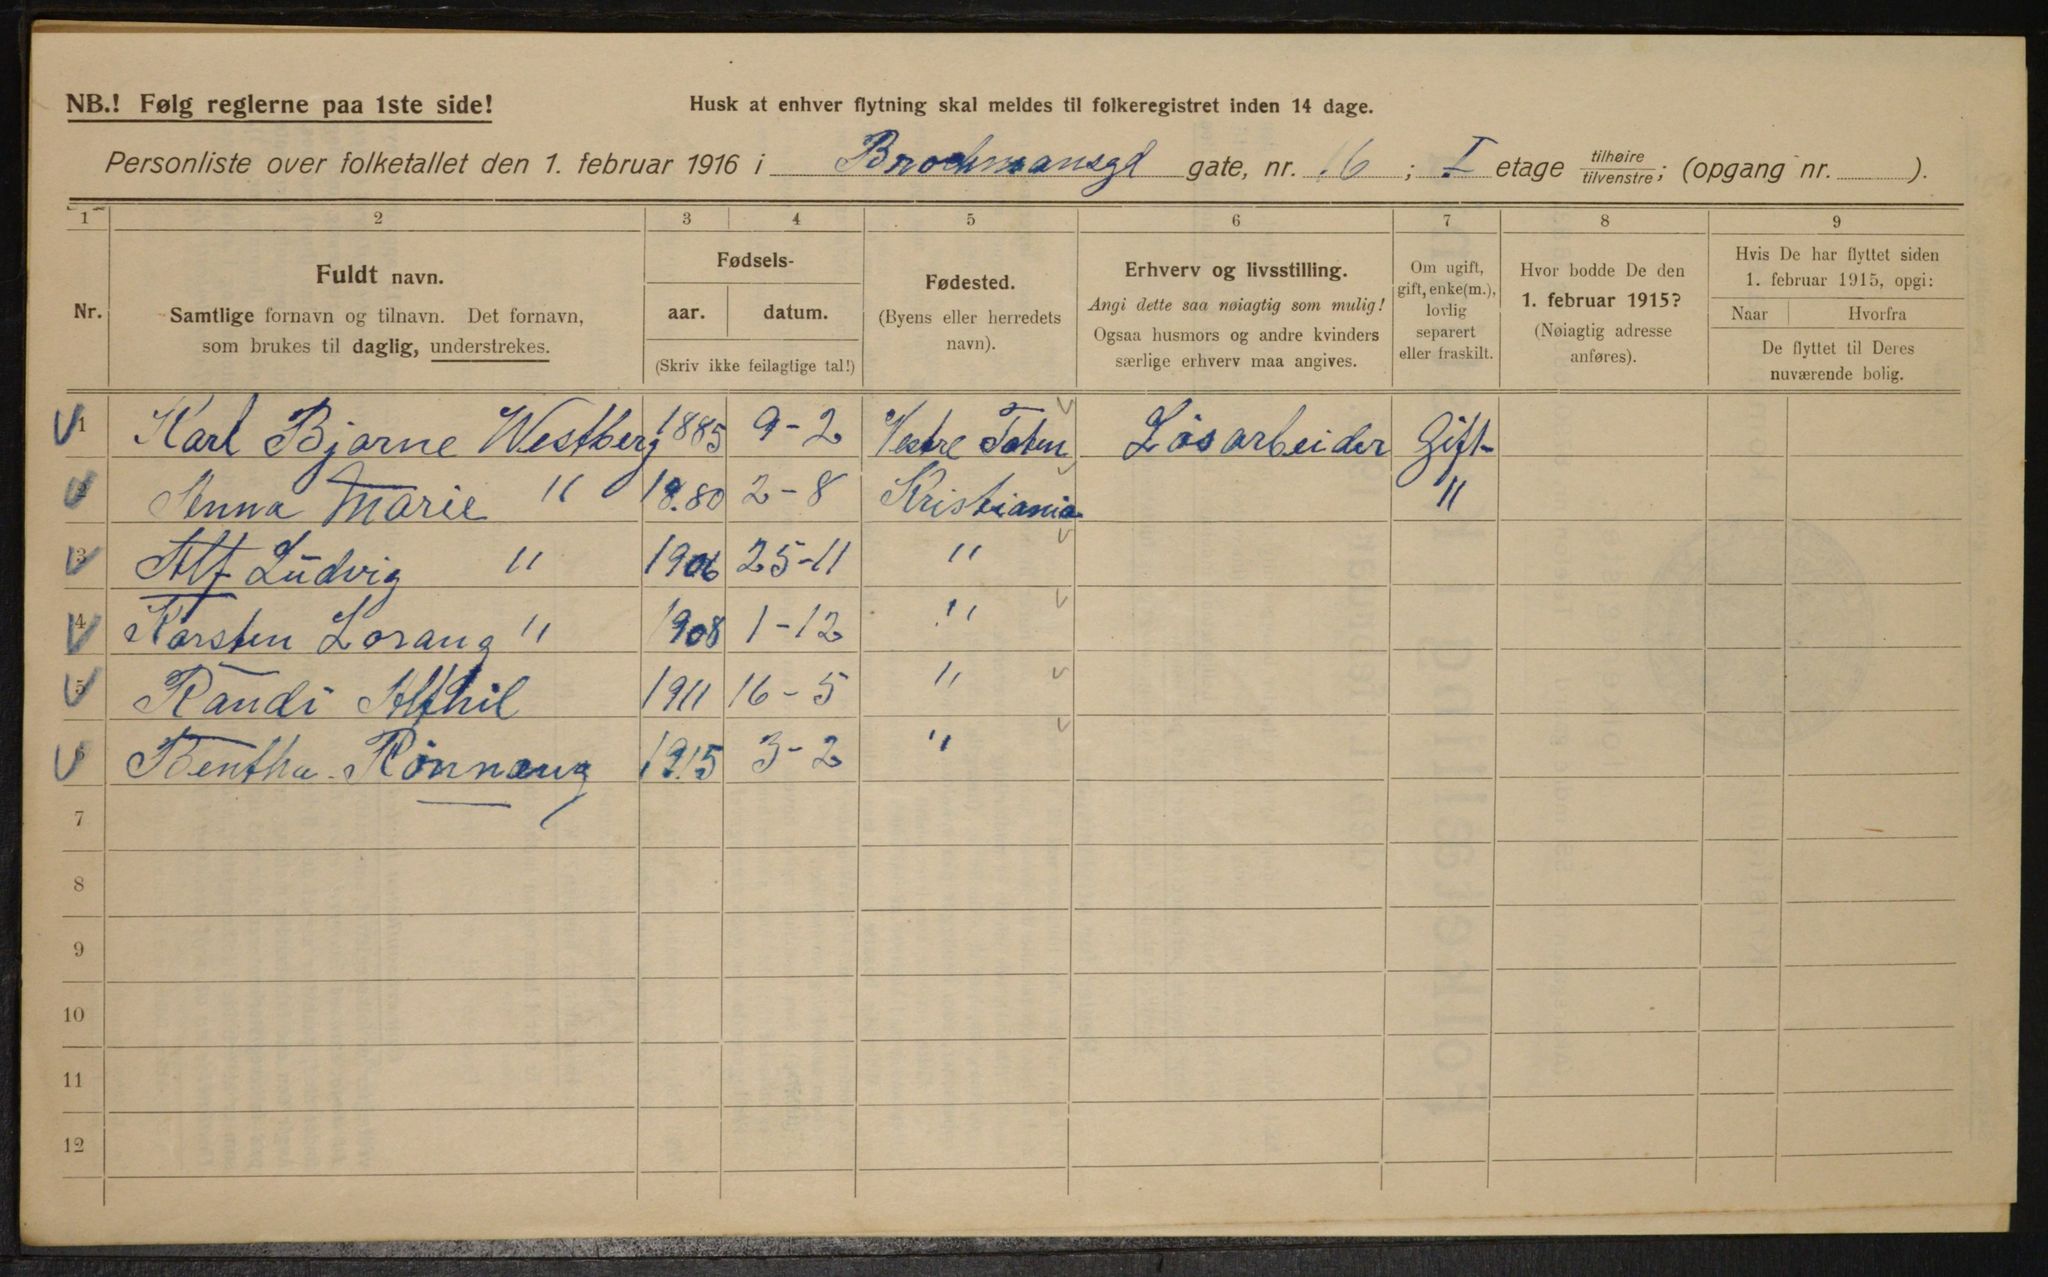 NB.! Følg reglerne paa 1ste side!
Husk at enhver flytning skal meldes til folkeregistret inden 14 dage.
Personliste over folketallet den 1. februar 1916 i Brochmansgd gate, nr. 16 ; I etage tilhøire/tilvenstre; (opgang nr. ).
1 2 3 4 5 6 7 8 9
Nr.
Fuldt navn.
Samtlige fornavn og tilnavn. Det fornavn,
som brukes til daglig, understrekes.
Fødsels-
aar. datum.
(Skriv ikke feilagtige tal!)
Fødested.
(Byens eller herredets
navn).
Erhverv og livsstilling.
Angi dette saa nøiagtig som mulig!
Ogsaa husmors og andre kvinders
særlige erhverv maa angives.
Om ugift,
gift, enke(m.),
lovlig
separert
eller fraskilt.
Hvor bodde De den
1. februar 1915?
(Nøiagtig adresse
anføres).
Hvis De har flyttet siden
1. februar 1915, opgi:
Naar Hvorfra
De flyttet til Deres
nuværende bolig.
1 Karl Bjarne Westberg 1885 9-2 Vestre Toten Løsarbeider Gift
2 Anna Marie " 1880 2-8 Kristiania "
3 Alf Ludvig " 1906 25-11 "
4 Karsten Lorang " 1908 1-12 "
5 Randi Alfhil 1911 16-5 "
6 Bentha Rønnaug 1915 3-2 "
7
8
9
10
11
12